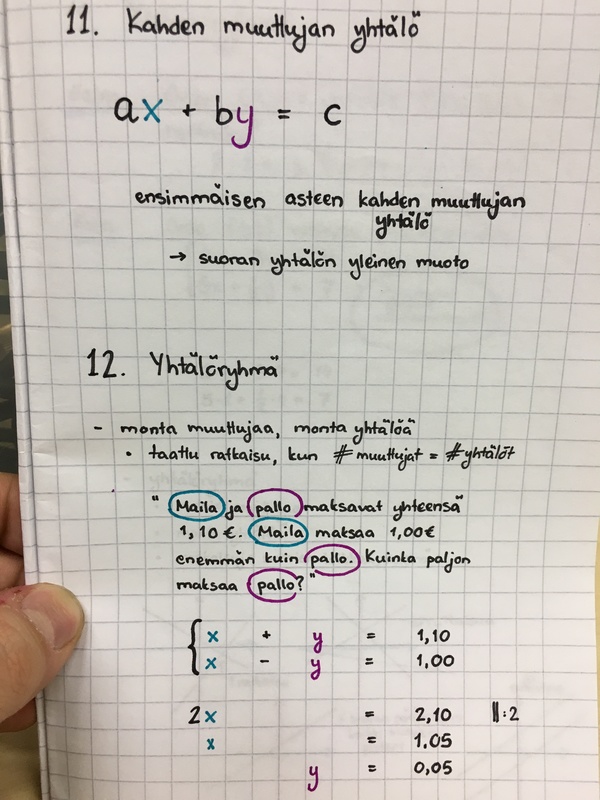 11. Kahden muuttujan yhtälö
ax + by = c
ensimmäisen asteen kahden muuttujan
yhtälö
→ suoran yhtälön yleinen muoto
12. Yhtälöryhmä
- monta muuttujaa, monta yhtälöä
• taattu ratkaisu, kun #muuttujat = #yhtälöt
"Maila ja pallo maksavat yhteensä
1,10 €. Maila maksaa 1,00€
enemmän kuin pallo. Kuinka paljon
maksaa pallo?"
{ x + y = 1,10
x - y = 1,00
2x = 2,10 ||:2
x = 1.05
y = 0,05